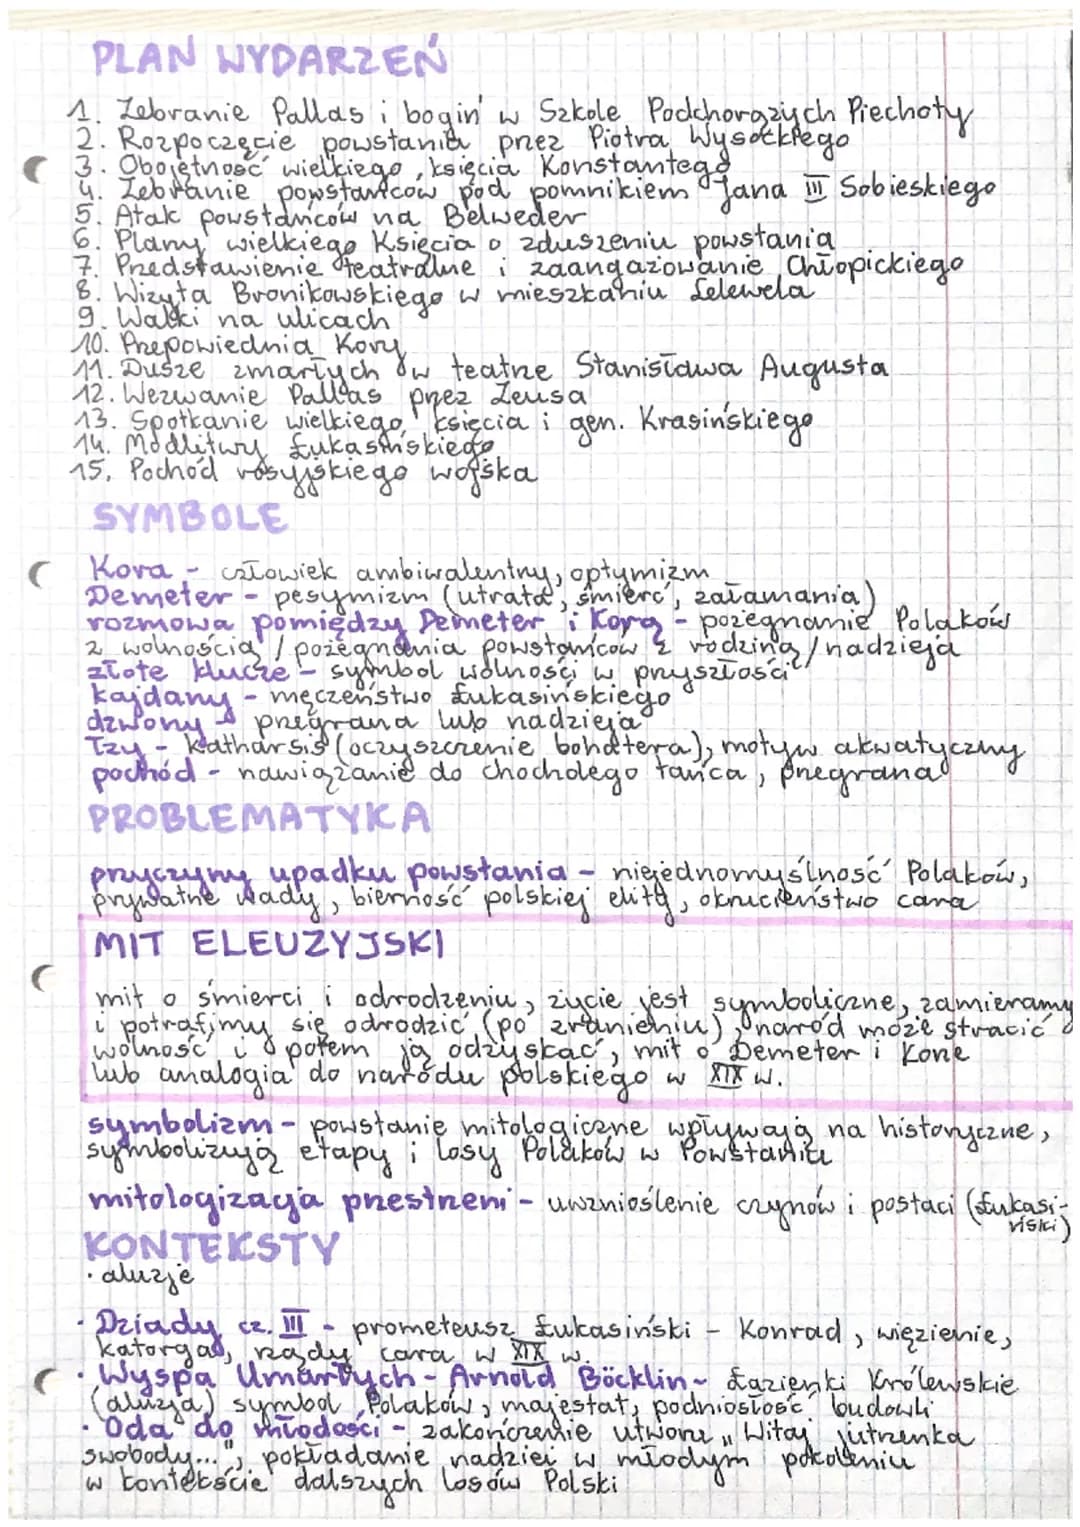 PLAN WYDARZEŃ
1. Zebranie Pallas i bogiń w Szkole Podchorążych Piechoty
2. Rozpoczęcie powstania przez Piotra Wysockiego
3. Obojętność wielkiego księcia Konstantego
4. Zebranie powstańców pod pomnikiem Jana III Sobieskiego
5. Atak powstańców na Belweder
6. Plany wielkiego Księcia o zduszeniu powstania
7. Przedstawienie teatralne i zaangażowanie Chłopickiego
8. Wizyta Bronikowskiego w mieszkaniu Lelewela
9. Walki na ulicach
10. Przepowiednia Kory
11. Dusze zmarłych w teatrze Stanisława Augusta
12. Wezwanie Pallas przez Zeusa
13. Spotkanie wielkiego księcia i gen. Krasińskiego
14. Modlitwy Łukasińskiego
15. Pochód rosyjskiego wojska
SYMBOLE
Kora - człowiek ambiwalentny, optymizm
Demeter - pesymizm (utrata, śmierć, załamania)
rozmowa pomiędzy Demeter i Korą - pożegnanie Polaków
z wolnością / pożegnania powstańców z rodziną / nadzieja
złote klucze - symbol wolności w przyszłości
kajdany - męczeństwo Łukasińskiego
dzwony - przegrana lub nadzieja
łzy - katharsis (oczyszczenie bohatera), motyw akwatyczny
pochód - nawiązanie do chocholego tańca, przegrana
PROBLEMATYKA
przyczyny upadku powstania - niejednomyślność Polaków,
prywatne wady, bierność polskiej elity, okrucieństwo cara
MIT ELEUZYJSKI
mit o śmierci i odrodzeniu, życie jest symboliczne, zamieramy
i potrafimy się odrodzić (po zranieniu), naród może stracić
wolność i potem ją odzyskać, mit o Demeter i Korze
lub analogia do narodu polskiego w XIX w.
symbolizm - powstanie mitologiczne wpływają na historyczne,
symbolizują etapy i losy Polaków w Powstaniu
mitologizacja przestrzeni - uwznioślenie czynów i postaci (Łukasi-
ński)
KONTEKSTY
• aluzje
• Dziady cz. III - prometeusz Łukasiński - Konrad, więzienie,
katorga, rządy cara w XIX w.
• Wyspa Umarłych - Arnold Böcklin - Łazienki Królewskie
(aluzja) symbol Polaków, majestat, podniosłość budowli
• Oda do młodości - zakończenie utworu „Witaj jutrzenka
swobody...", pokładanie nadziei w młodym pokoleniu
w kontekście dalszych losów Polski